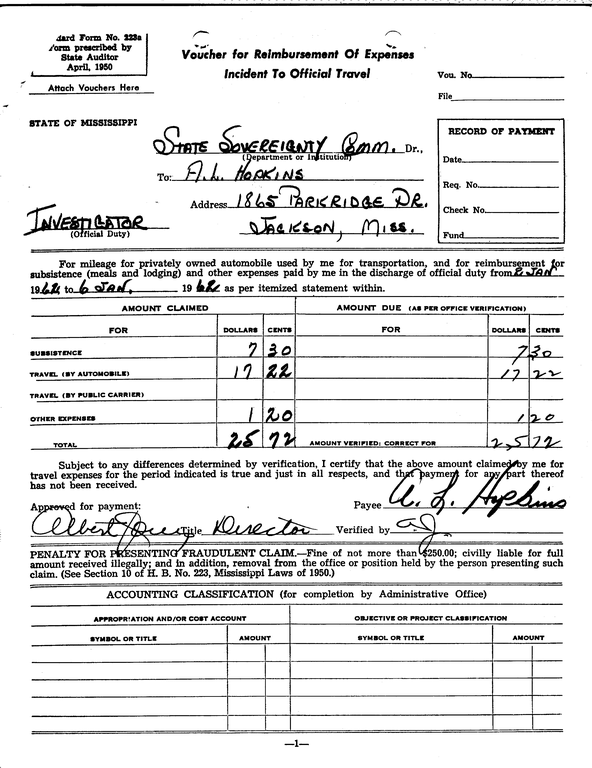 dard Form No. 223a
Form prescribed by
State Auditor
April, 1950
Attach Vouchers Here
Voucher for Reimbursement Of Expenses
Incident To Official Travel
Vou. No.
File
STATE OF MISSISSIPPI
STATE SOVEREIGNTY COMM. Dr.,
(Department or Institution)
To: A.L. HOPKINS
Address 1865 PARKRIDGE DR.
JACKSON, MISS.
INVESTIGATOR
(Official Duty)
RECORD OF PAYMENT
Date
Req. No.
Check No.
Fund
For mileage for privately owned automobile used by me for transportation, and for reimbursement for
subsistence (meals and lodging) and other expenses paid by me in the discharge of official duty from 2 JAN
1962 to 6 JAN. 1962 as per itemized statement within.
AMOUNT CLAIMED AMOUNT DUE (AS PER OFFICE VERIFICATION)
FOR DOLLARS CENTS FOR DOLLARS CENTS
SUBSISTENCE 7 30 7 30
TRAVEL (BY AUTOMOBILE) 17 22 17 22
TRAVEL (BY PUBLIC CARRIER)
OTHER EXPENSES 1 20 1 20
TOTAL 25 72 AMOUNT VERIFIED; CORRECT FOR 2,5 72
Subject to any differences determined by verification, I certify that the above amount claimed by me for
travel expenses for the period indicated is true and just in all respects, and that payment for any part thereof
has not been received.
Approved for payment: Payee A. L. Hopkins
Albert Jones Title Director Verified by AJ
PENALTY FOR PRESENTING FRAUDULENT CLAIM.—Fine of not more than $250.00; civilly liable for full
amount received illegally; and in addition, removal from the office or position held by the person presenting such
claim. (See Section 10 of H. B. No. 223, Mississippi Laws of 1950.)
ACCOUNTING CLASSIFICATION (for completion by Administrative Office)
APPROPRIATION AND/OR COST ACCOUNT OBJECTIVE OR PROJECT CLASSIFICATION
SYMBOL OR TITLE AMOUNT SYMBOL OR TITLE AMOUNT
—1—